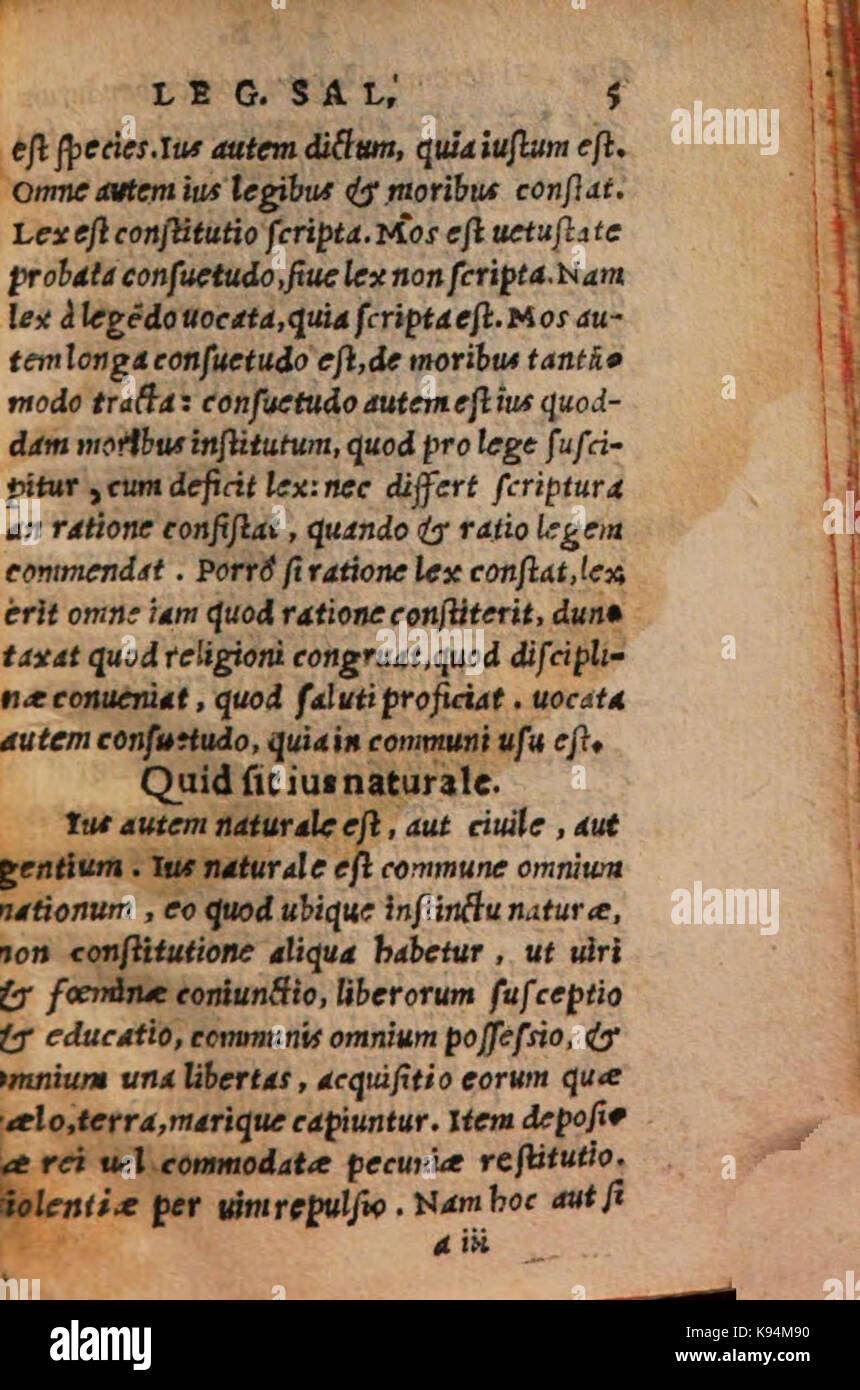 LEG. SAL. 5
est species. Ius autem dictum, quia iustum est.
Omne autem ius legibus & moribus constat.
Lex est constitutio scripta. Mos est uetustate
probata consuetudo, siue lex non scripta. Nam
lex à legēdo uocata, quia scripta est. Mos au-
tem longa consuetudo est, de moribus tantū-
modo tracta: consuetudo autem est ius quod-
dam moribus institutum, quod pro lege susci-
pitur, cum deficit lex: nec differt scriptura
an ratione consistat, quando & ratio legem
commendat. Porrò si ratione lex constat, lex
erit omne iam quod ratione constiterit, dun-
taxat quod religioni congruat, quod discipli-
næ conueniat, quod saluti proficiat. uocata
autem consuetudo, quia in communi usu est.
Quid sit ius naturale.
Ius autem naturale est, aut ciuile, aut
gentium. Ius naturale est commune omnium
nationum, eo quod ubique instinctu naturæ,
non constitutione aliqua habetur, ut uiri
& fœminæ coniunctio, liberorum susceptio
& educatio, communis omnium possessio, &
omnium una libertas, acquisitio eorum quæ
cælo, terra, marique capiuntur. Item deposi-
æ rei uel commodatæ pecuniæ restitutio.
uiolentiæ per uim repulsio. Nam hoc aut si
a iii
alamy
alamy
alamy
alamy
K94M90
www.alamy.com